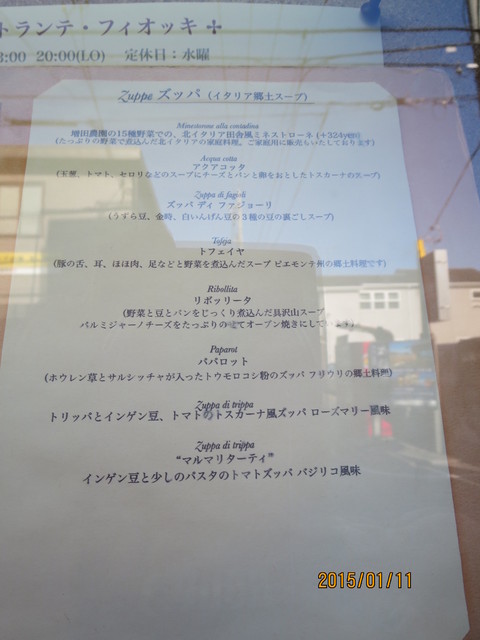 トランテ・フィオッキ
3:00 20:00(LO) 定休日：水曜
Zuppe ズッパ (イタリア郷土スープ)
Minestrone alla contadina
増田農園の15種野菜での、北イタリア田舎風ミネストローネ (+324yen)
(たっぷりの野菜で煮込んだ北イタリアの家庭料理。ご家庭用に販売もいたしております)
Acqua cotta
アクアコッタ
(玉葱、トマト、セロリなどのスープにチーズとパンと卵をおとしたトスカーナのスープ)
Zuppa di fagioli
ズッパ ディ ファジョーリ
(うずら豆、金時、白いんげん豆の3種の豆の裏ごしスープ)
Tofeja
トフェイヤ
(豚の舌、耳、ほほ肉、足などと野菜を煮込んだスープ ピエモンテ州の郷土料理です)
Ribollita
リボッリータ
(野菜と豆とパンをじっくり煮込んだ具沢山スープ
パルミジャーノチーズをたっぷりのせてオーブン焼きにしています)
Paparot
パパロット
(ホウレン草とサルシッチャが入ったトウモロコシ粉のズッパ フリウリの郷土料理)
Zuppa di trippa
トリッパとインゲン豆、トマトのトスカーナ風ズッパ ローズマリー風味
Zuppa di trippa
“マルマリターティ”
インゲン豆と少しのパスタのトマトズッパ バジリコ風味
2015/01/11